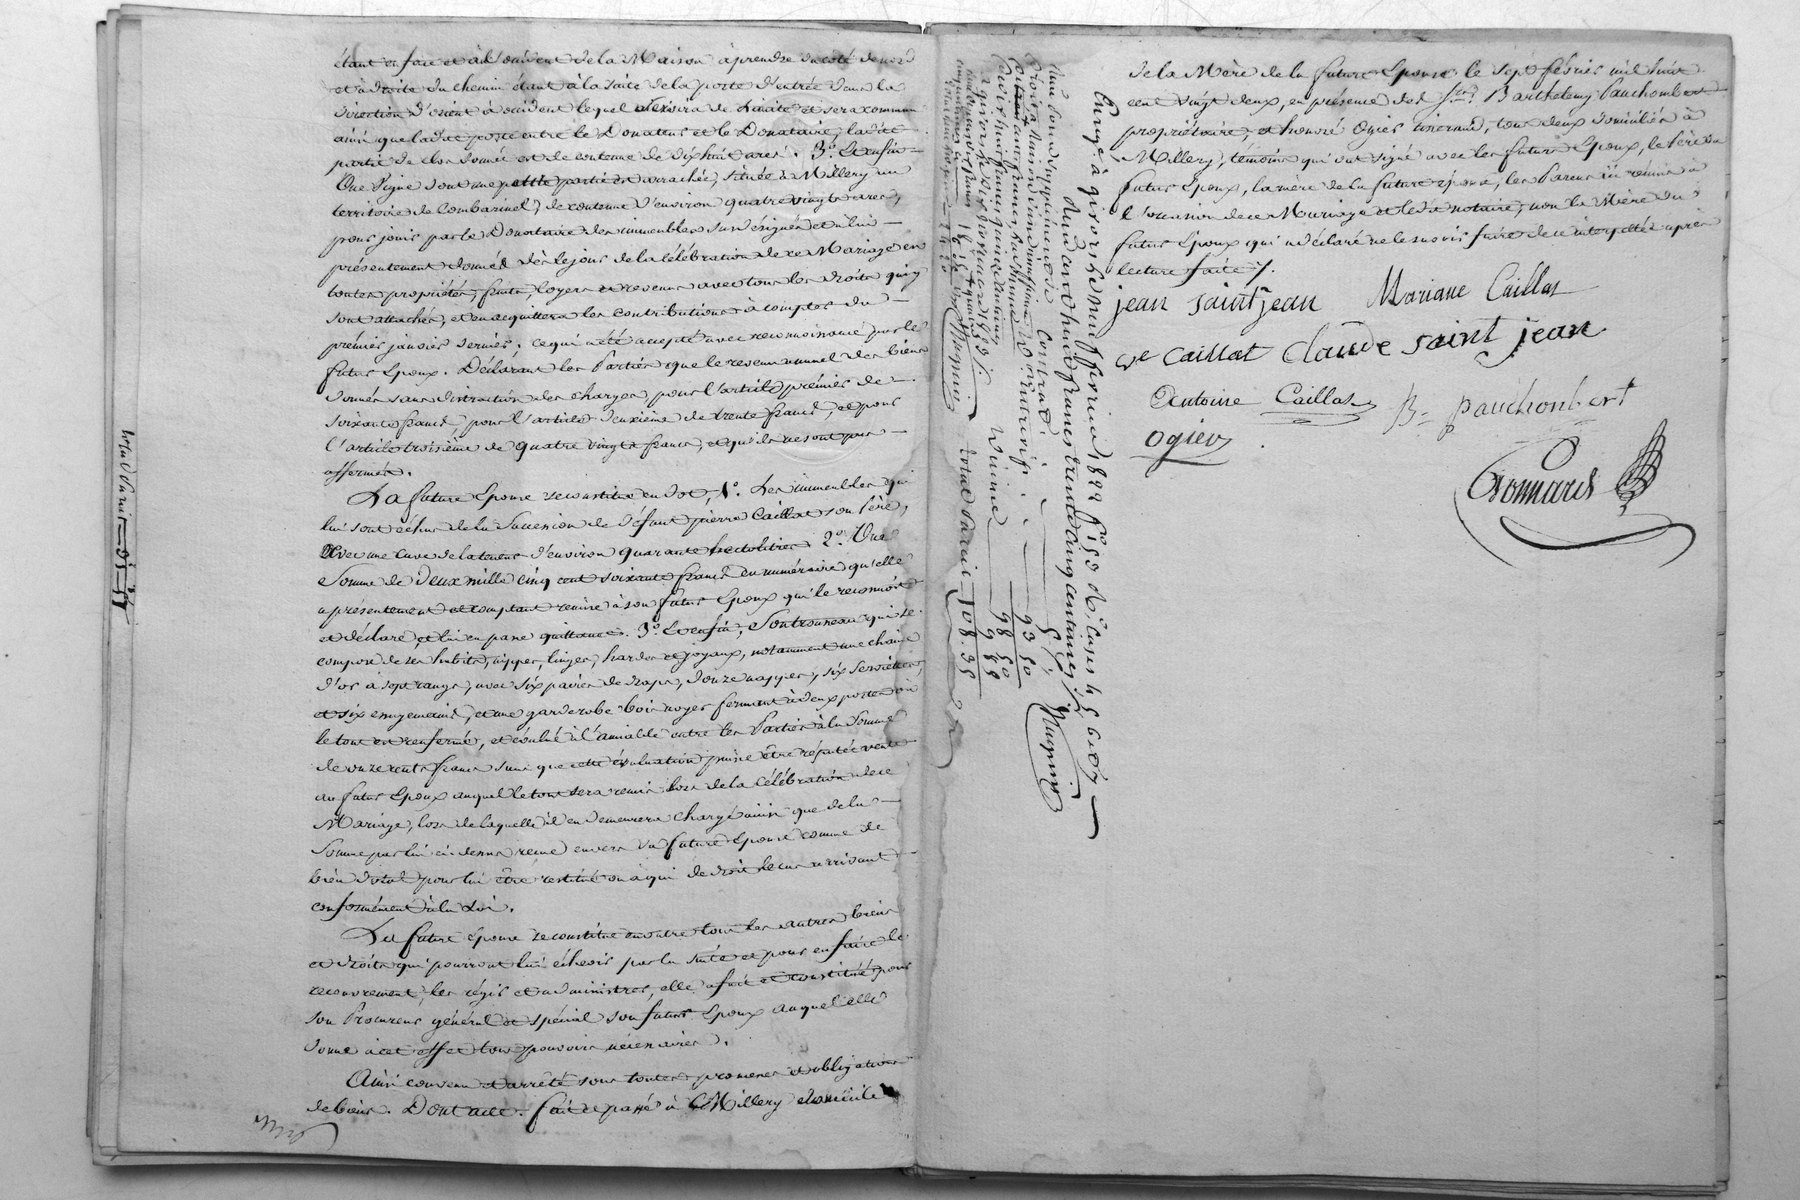 étant en face et à l'orient de la Maison à prendre du coté de nord
et à droite du chemin étant à la suite de la porte d'entrée dans la
direction d'orient à occident lequel servira de limite et sera commun
ainsi que la dite porte entre le Donateur et le Donataire, la dite
partie de clos donnée est de contenue de dix huit ares. 3.° Et enfin
Une Vigne dont une petite partie est arrachée, située à Millery au
territoire de Combarinel, de contenue d'environ quatre vingts ares,
pour jouir par le Donataire des immeubles sus désignés et à lui
présentement donnés dès le jour de la célébration de ce Mariage en
toutes propriétés, fruits, loyers et revenus avec tous les droits qui y
sont attachés, et en acquittera les contributions à compter du
premier janvier dernier, ce qui a été accepté avec reconnoissance par le
futur Epoux. Déclarant les Parties que le revenu annuel des biens
donnés sans distraction des charges, pour l'article premier de
soixante francs, pour l'article deuxième de trente francs, et pour
l'article troisième de quatre vingts francs, et qu'ils ne sont pas
affermés.
La future Epouse se constitue en dot, 1.° Les immeubles qui
lui sont échus de la Succession de défunt pierre Caillat son Père,
Avec une cuve de la tenue d'environ quarante hectolitres. 2.° Une
Somme de deux mille cinq cent soixante francs en numéraire qu'elle
a présentement et comptant remise à son futur Epoux qui le reconnoit
et déclare, et lui en passe quittance. 3.° Et enfin, Son trousseau qui se
compose de ses habits, nippes, linges, hardes et joyaux, notamment une chaine
d'or à sept rangs, avec six paires de draps, douze nappes, six serviettes,
et six essuyemains, et une garderobe bois noyer fermant à deux portes où
le tout est renfermé, et évalué à l'amiable entre les Parties à la somme
de onze cents francs sans que cette évaluation puisse être réputée vente
au futur Epoux auquel le tout sera remis lors de la célébration de ce
Mariage, lors de laquelle il en demeurera chargé ainsi que de la
Somme par lui ci dessus reçue envers sa future Epouse comme de
bien dotal pour lui être restitué ou à qui de droit le cas arrivant
conformément à la Loi.
La future Epouse se constitue en outre tous les autres biens
et droits qui pourront lui échoir par la suite et pour en faire le
recouvrement, les régir et administrer, elle a fait et constitué pour
son Procureur général et spécial son futur Epoux auquel elle
donne à cet effet tous pouvoirs nécessaires.
Ainsi convenu et arrêté sous toutes promesses et obligations
de biens. Dont acte. Fait et passé à Millery domicile
de la Mère de la future Epouse le sept février mil huit
cent vingt deux, en présence des Srs Barthelemy Pauchombert
propriétaire, et honoré Ogier tisserand, tous deux domiciliés à
Millery, témoins qui ont signé avec les futurs Epoux, le Père du
futur Epoux, la mère de la future Epouse, les Parens ici réunis à
l'occasion de ce Mariage et le dit notaire, non la Mère du
futur Epoux qui a déclaré ne le savoir faire de ce interpellée après
lecture faite.
jean saintjean Mariane Caillat
Ve Caillat Claude saint jean
Antoine Caillat B. pauchonbert
ogier
Bonnard
Enrgé à givors le neuf février 1822 f° 153